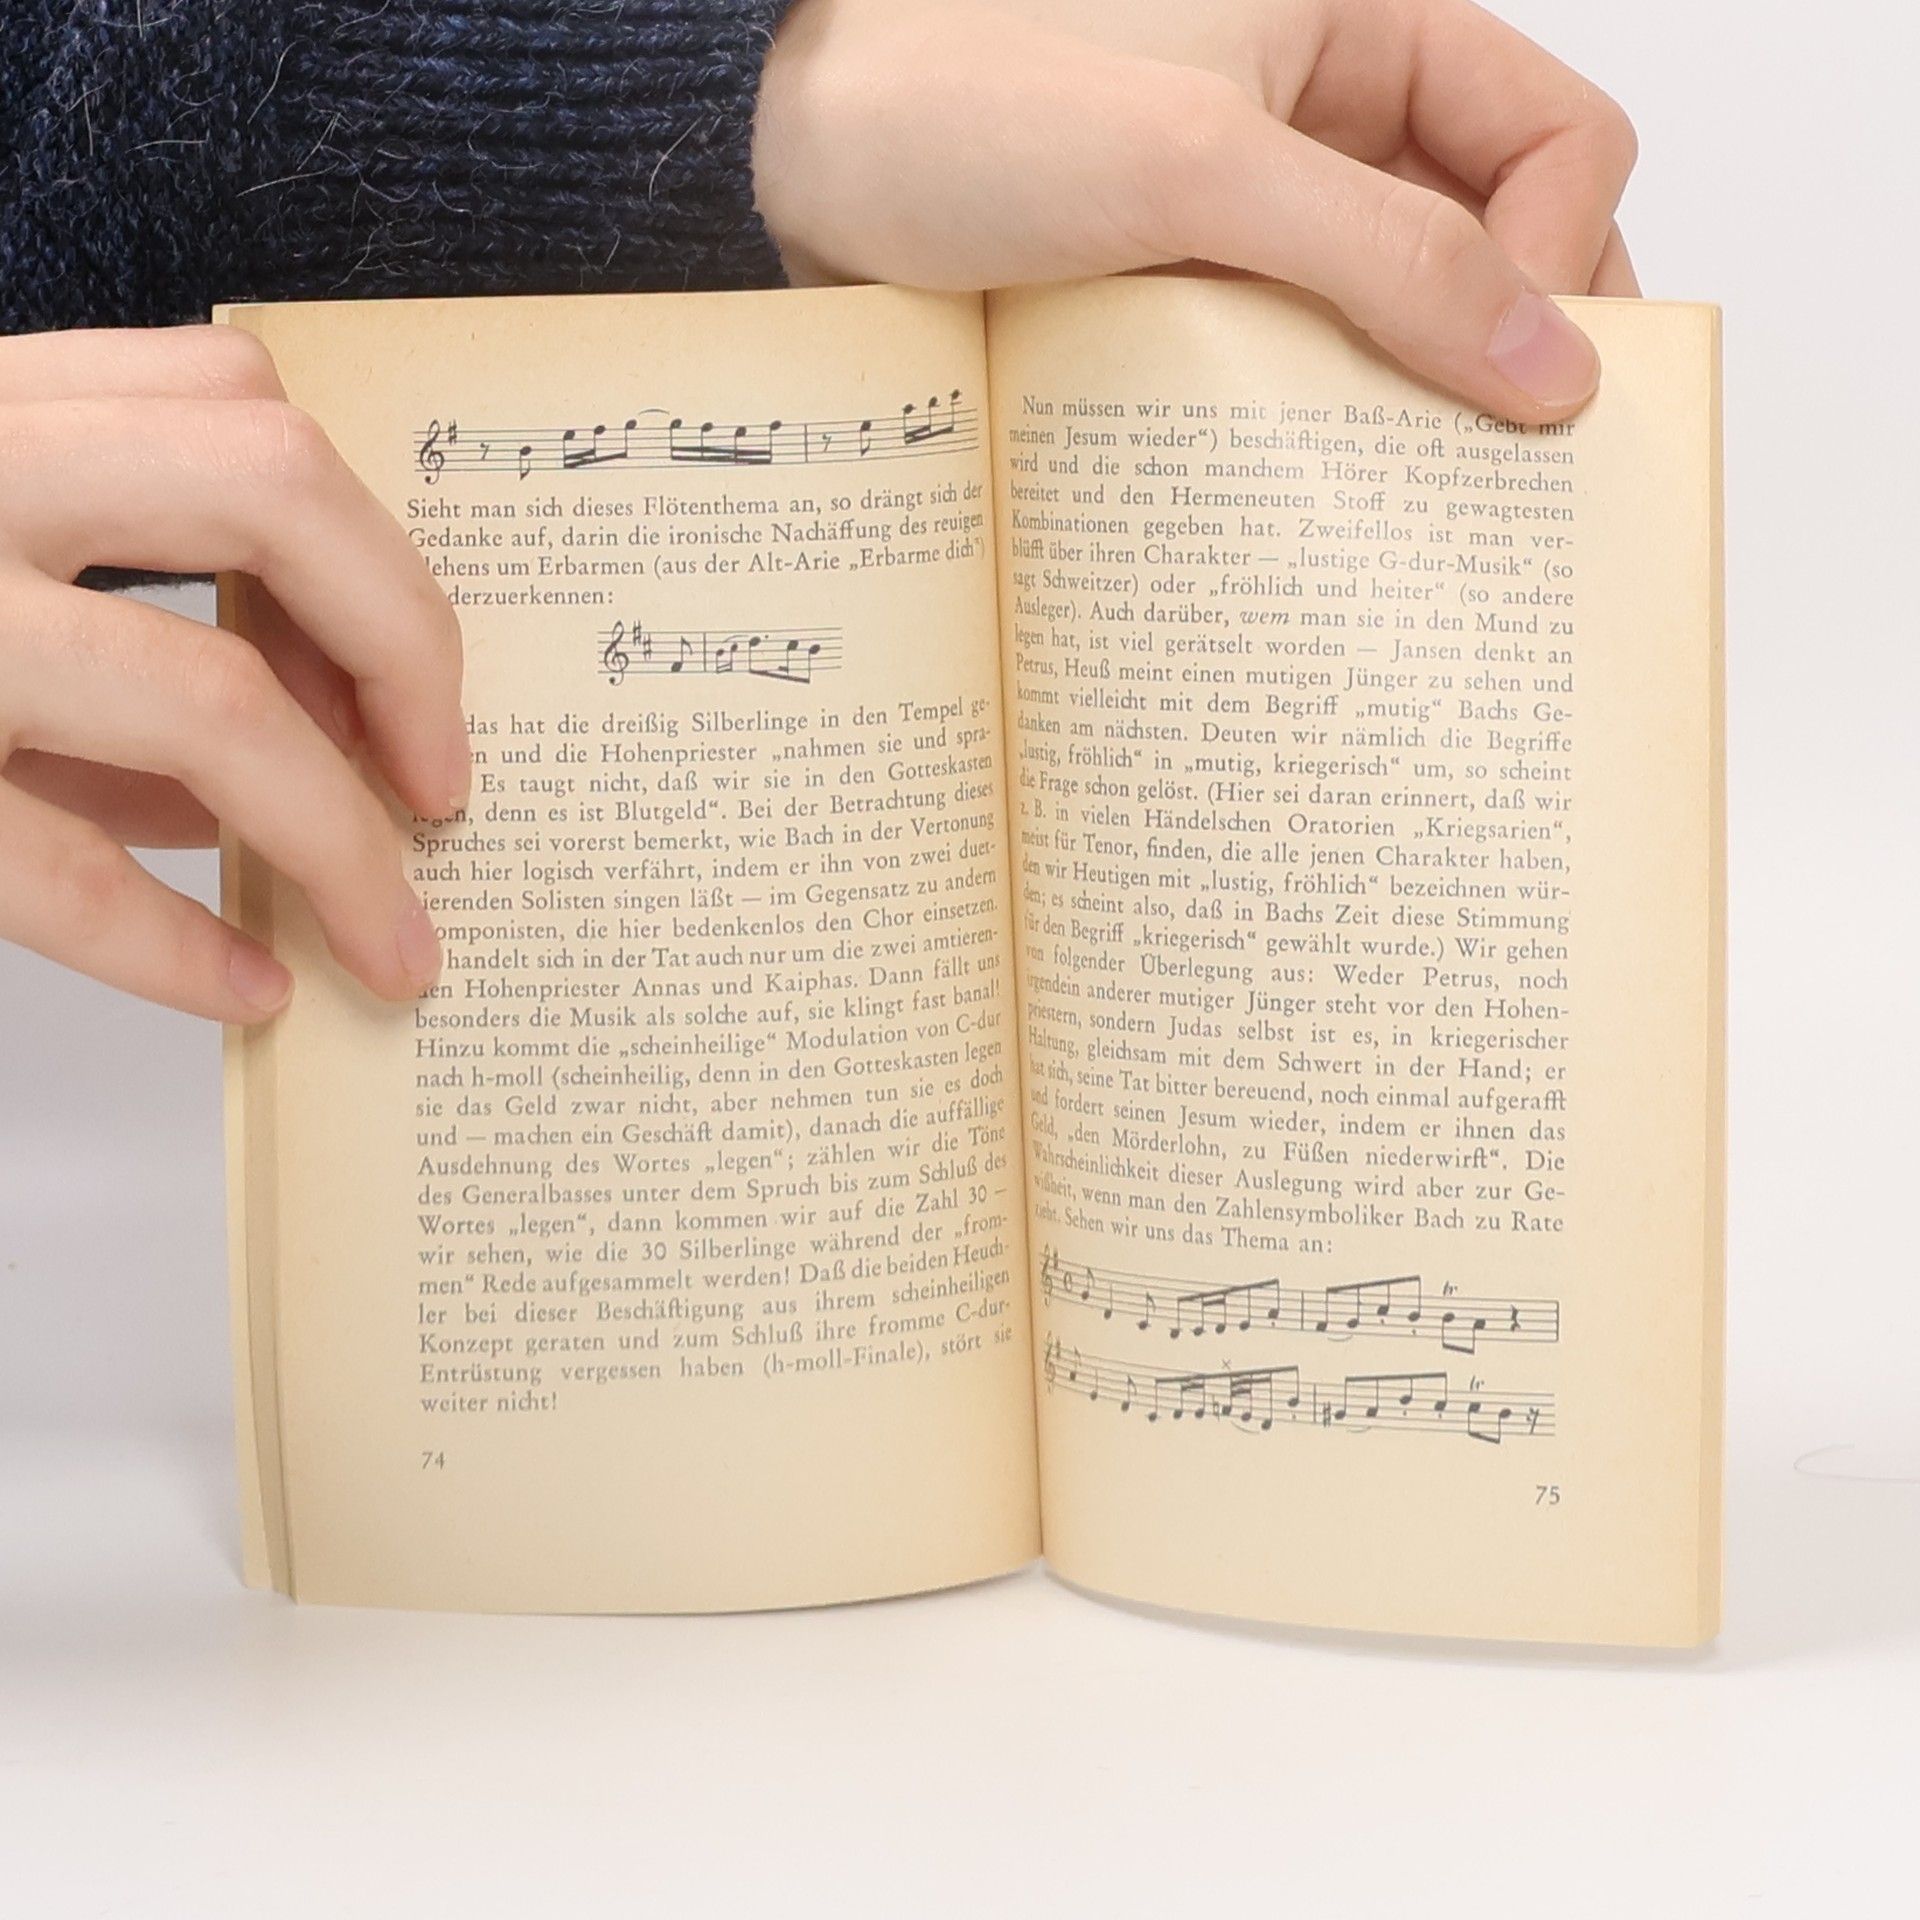 Sieht man sich dieses Flötenthema an, so drängt sich der
Gedanke auf, darin die ironische Nachäffung des reuigen
lehens um Erbarmen (aus der Alt-Arie „Erbarme dich“)
derzuerkennen:
das hat die dreißig Silberlinge in den Tempel ge-
en und die Hohenpriester „nahmen sie und spra-
Es taugt nicht, daß wir sie in den Gotteskasten
denn es ist Blutgeld“. Bei der Betrachtung dieses
Spruches sei vorerst bemerkt, wie Bach in der Vertonung
auch hier logisch verfährt, indem er ihn von zwei duet-
tierenden Solisten singen läßt — im Gegensatz zu andern
omponisten, die hier bedenkenlos den Chor einsetzen.
handelt sich in der Tat auch nur um die zwei amtieren-
den Hohenpriester Annas und Kaiphas. Dann fällt uns
besonders die Musik als solche auf, sie klingt fast banal!
Hinzu kommt die „scheinheilige“ Modulation von C-dur
nach h-moll (scheinheilig, denn in den Gotteskasten legen
sie das Geld zwar nicht, aber nehmen tun sie es doch
und — machen ein Geschäft damit), danach die auffällige
Ausdehnung des Wortes „legen“; zählen wir die Töne
des Generalbasses unter dem Spruch bis zum Schluß des
Wortes „legen“, dann kommen wir auf die Zahl 30 —
wir sehen, wie die 30 Silberlinge während der „from-
men“ Rede aufgesammelt werden! Daß die beiden Heuch-
ler bei dieser Beschäftigung aus ihrem scheinheiligen
Konzept geraten und zum Schluß ihre fromme C-dur-
Entrüstung vergessen haben (h-moll-Finale), stört sie
weiter nicht!
74
Nun müssen wir uns mit jener Baß-Arie („Gebt mir
meinen Jesum wieder“) beschäftigen, die oft ausgelassen
wird und die schon manchem Hörer Kopfzerbrechen
bereitet und den Hermeneuten Stoff zu gewagtesten
Kombinationen gegeben hat. Zweifellos ist man ver-
blüfft über ihren Charakter — „lustige G-dur-Musik“ (so
sagt Schweitzer) oder „fröhlich und heiter“ (so andere
Ausleger). Auch darüber, wem man sie in den Mund zu
legen hat, ist viel gerätselt worden — Jansen denkt an
Petrus, Heuß meint einen mutigen Jünger zu sehen und
kommt vielleicht mit dem Begriff „mutig“ Bachs Ge-
danken am nächsten. Deuten wir nämlich die Begriffe
„lustig, fröhlich“ in „mutig, kriegerisch“ um, so scheint
die Frage schon gelöst. (Hier sei daran erinnert, daß wir
z. B. in vielen Händelschen Oratorien „Kriegsarien“,
meist für Tenor, finden, die alle jenen Charakter haben,
den wir Heutigen mit „lustig, fröhlich“ bezeichnen wür-
den; es scheint also, daß in Bachs Zeit diese Stimmung
für den Begriff „kriegerisch“ gewählt wurde.) Wir gehen
von folgender Überlegung aus: Weder Petrus, noch
irgendein anderer mutiger Jünger steht vor den Hohen-
priestern, sondern Judas selbst ist es, in kriegerischer
Haltung, gleichsam mit dem Schwert in der Hand; er
hat sich, seine Tat bitter bereuend, noch einmal aufgerafft
und fordert seinen Jesum wieder, indem er ihnen das
Geld, „den Mörderlohn, zu Füßen niederwirft“. Die
Wahrscheinlichkeit dieser Auslegung wird aber zur Ge-
wißheit, wenn man den Zahlensymboliker Bach zu Rate
zieht. Sehen wir uns das Thema an:
tr
tr
75